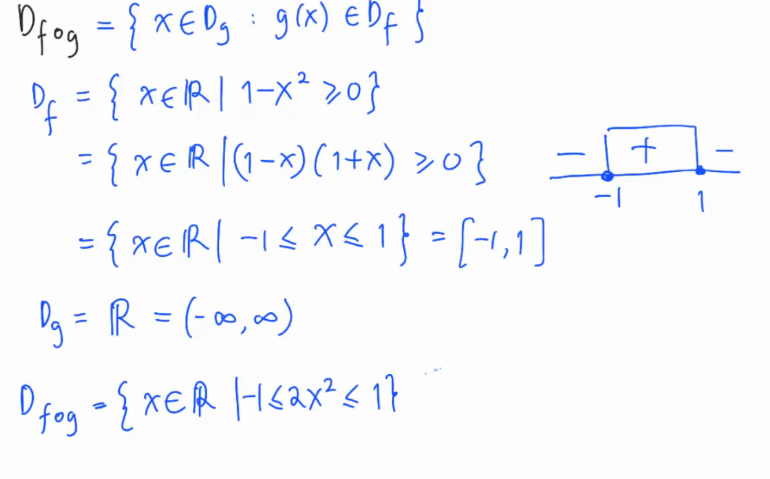 D_{fog} = { x ∈ D_g : g(x) ∈ D_f }
D_f = { x ∈ ℝ | 1-x² ⩾ 0}
= { x ∈ ℝ | (1-x)(1+x) ⩾ 0 }
— + -
-1 1
= { x ∈ ℝ | -1 ≤ x ≤ 1 } = [-1, 1]
D_g = ℝ = (-∞, ∞)
D_{fog} = { x ∈ ℝ | -1 ≤ 2x² ≤ 1}